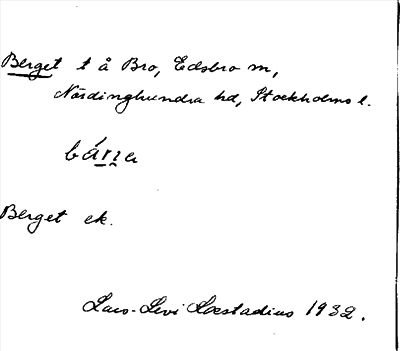 Berget t å Bro, Edsbro sn,
Närdinghundra hd, Stockholms l.
bárza
Berget ek.
Lars-Levi Læstadius 1932.